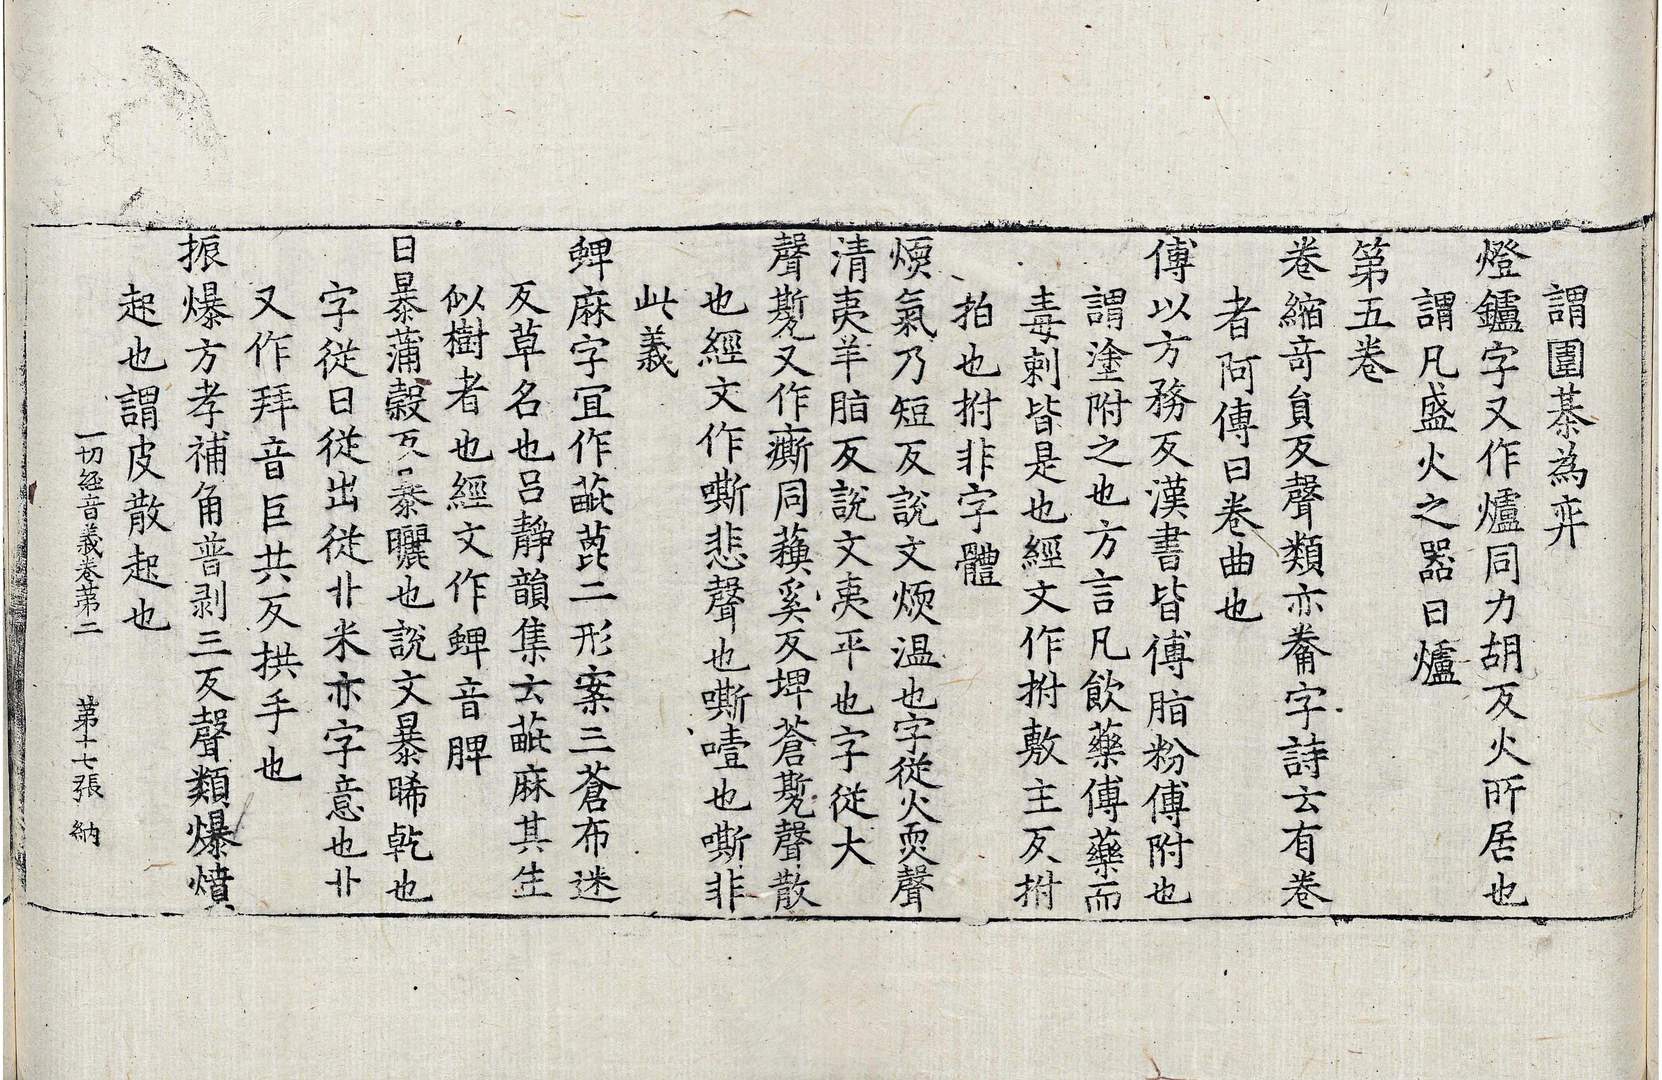 謂圍棊為弈
燈鑪字又作爐同力胡反火所居也
謂凡盛火之器曰爐
第五卷
卷縮奇負反聲類亦觠字詩云有卷
者阿傳曰卷曲也
傅以方務反漢書皆傅脂粉傅附也
謂塗附之也方言凡飲藥傅藥而
毒剌皆是也經文作拊敷主反拊
拍也拊非字體
煗氣乃短反說文煗温也字從火耎聲
清夷羊脂反說文夷平也字從大
聲㽄又作癬同蘓奚反埤蒼㽄聲散
也經文作嘶悲聲也嘶噎也嘶非
此義
鯡麻字宜作蓖萞二形案三蒼布迷
反草名也吕靜韻集云蓖麻其生
似樹者也經文作鯡音脾
日暴蒲穀反暴曬也說文暴晞乾也
字從日從出從廾米亦字意也廾
又作拜音巨共反拱手也
振爆方孝補角普剥三反聲類爆㸋
起也謂皮散起也
一切經音義卷第二　第十七張　納